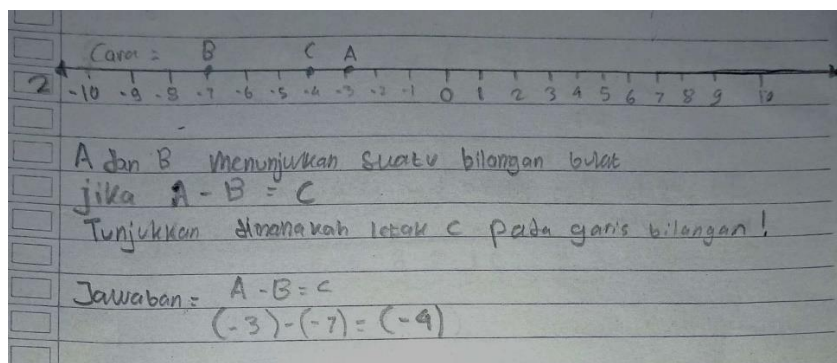 Cara = B C A
2 -10 -9 -8 -7 -6 -5 -4 -3 -2 -1 0 1 2 3 4 5 6 7 8 9 10
A dan B menunjukkan suatu bilangan bulat
jika A - B = C
Tunjukkan dimanakah letak C pada garis bilangan!
Jawaban = A - B = C
(-3) - (-7) = (-4)